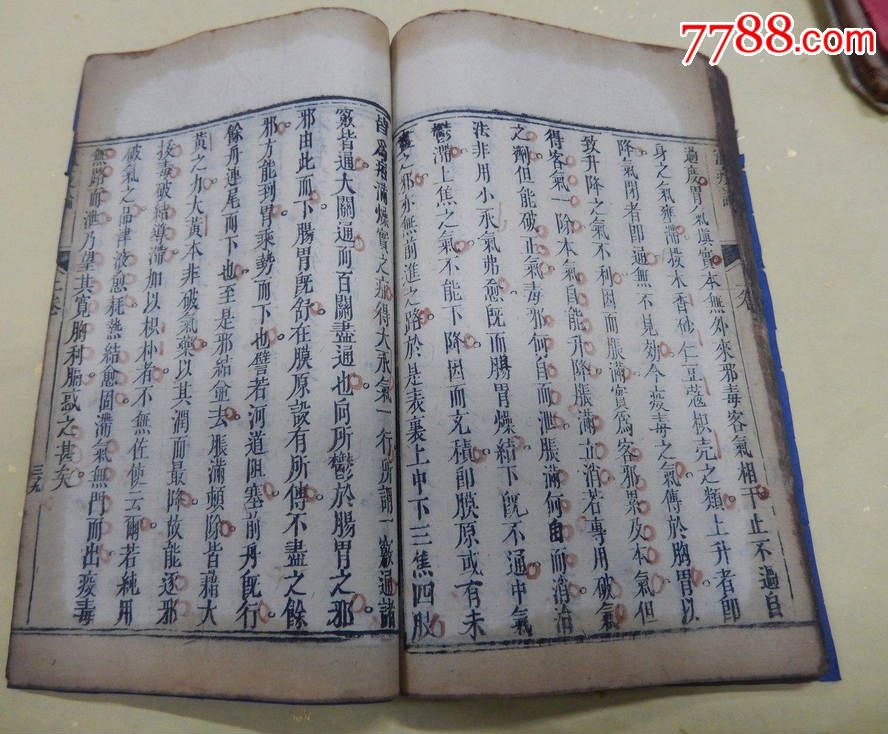 7788.com
過度胃氣填實本無外來邪毒客氣相干止不過自
身之氣壅滯投木香砂仁豆蔻枳壳之類上升者即
降氣閉者即通無不見効今疫毒之氣傳於胸胃以
致升降之氣不利因而脹滿實為客邪累及本氣但
得客氣一除本氣自能升降脹滿立消若專用破氣
之劑但能破正氣毒邪何自而泄脹滿何自而消治
法非用小承氣弗愈既而腸胃燥結下既不通中氣
鬱滯上焦之氣不能下降因而充積即膜原或有未
之邪亦無前進之路於是表裏上中下三焦四肢
皆為痞滿燥實之得大承氣一行所謂一竅通諸
竅皆通大關通而百關盡通也向所鬱於腸胃之邪
邪由此而下腸胃既舒在膜原設有所傳不盡之餘
邪方能到胃乘勢而下也譬若河道阻塞前舟既行
餘舟連尾而下也至是邪結並去脹滿頓除皆藉大
黃之力大黃本非破氣藥以其潤而最降故能逐邪
拔毒破結導滯加以枳朴者不無佐使云爾若純用
破氣之品津液愈耗熱結愈固滯氣無門而出疫毒
無路而泄乃望其寬胸利膈惑之甚矣
卷
三九